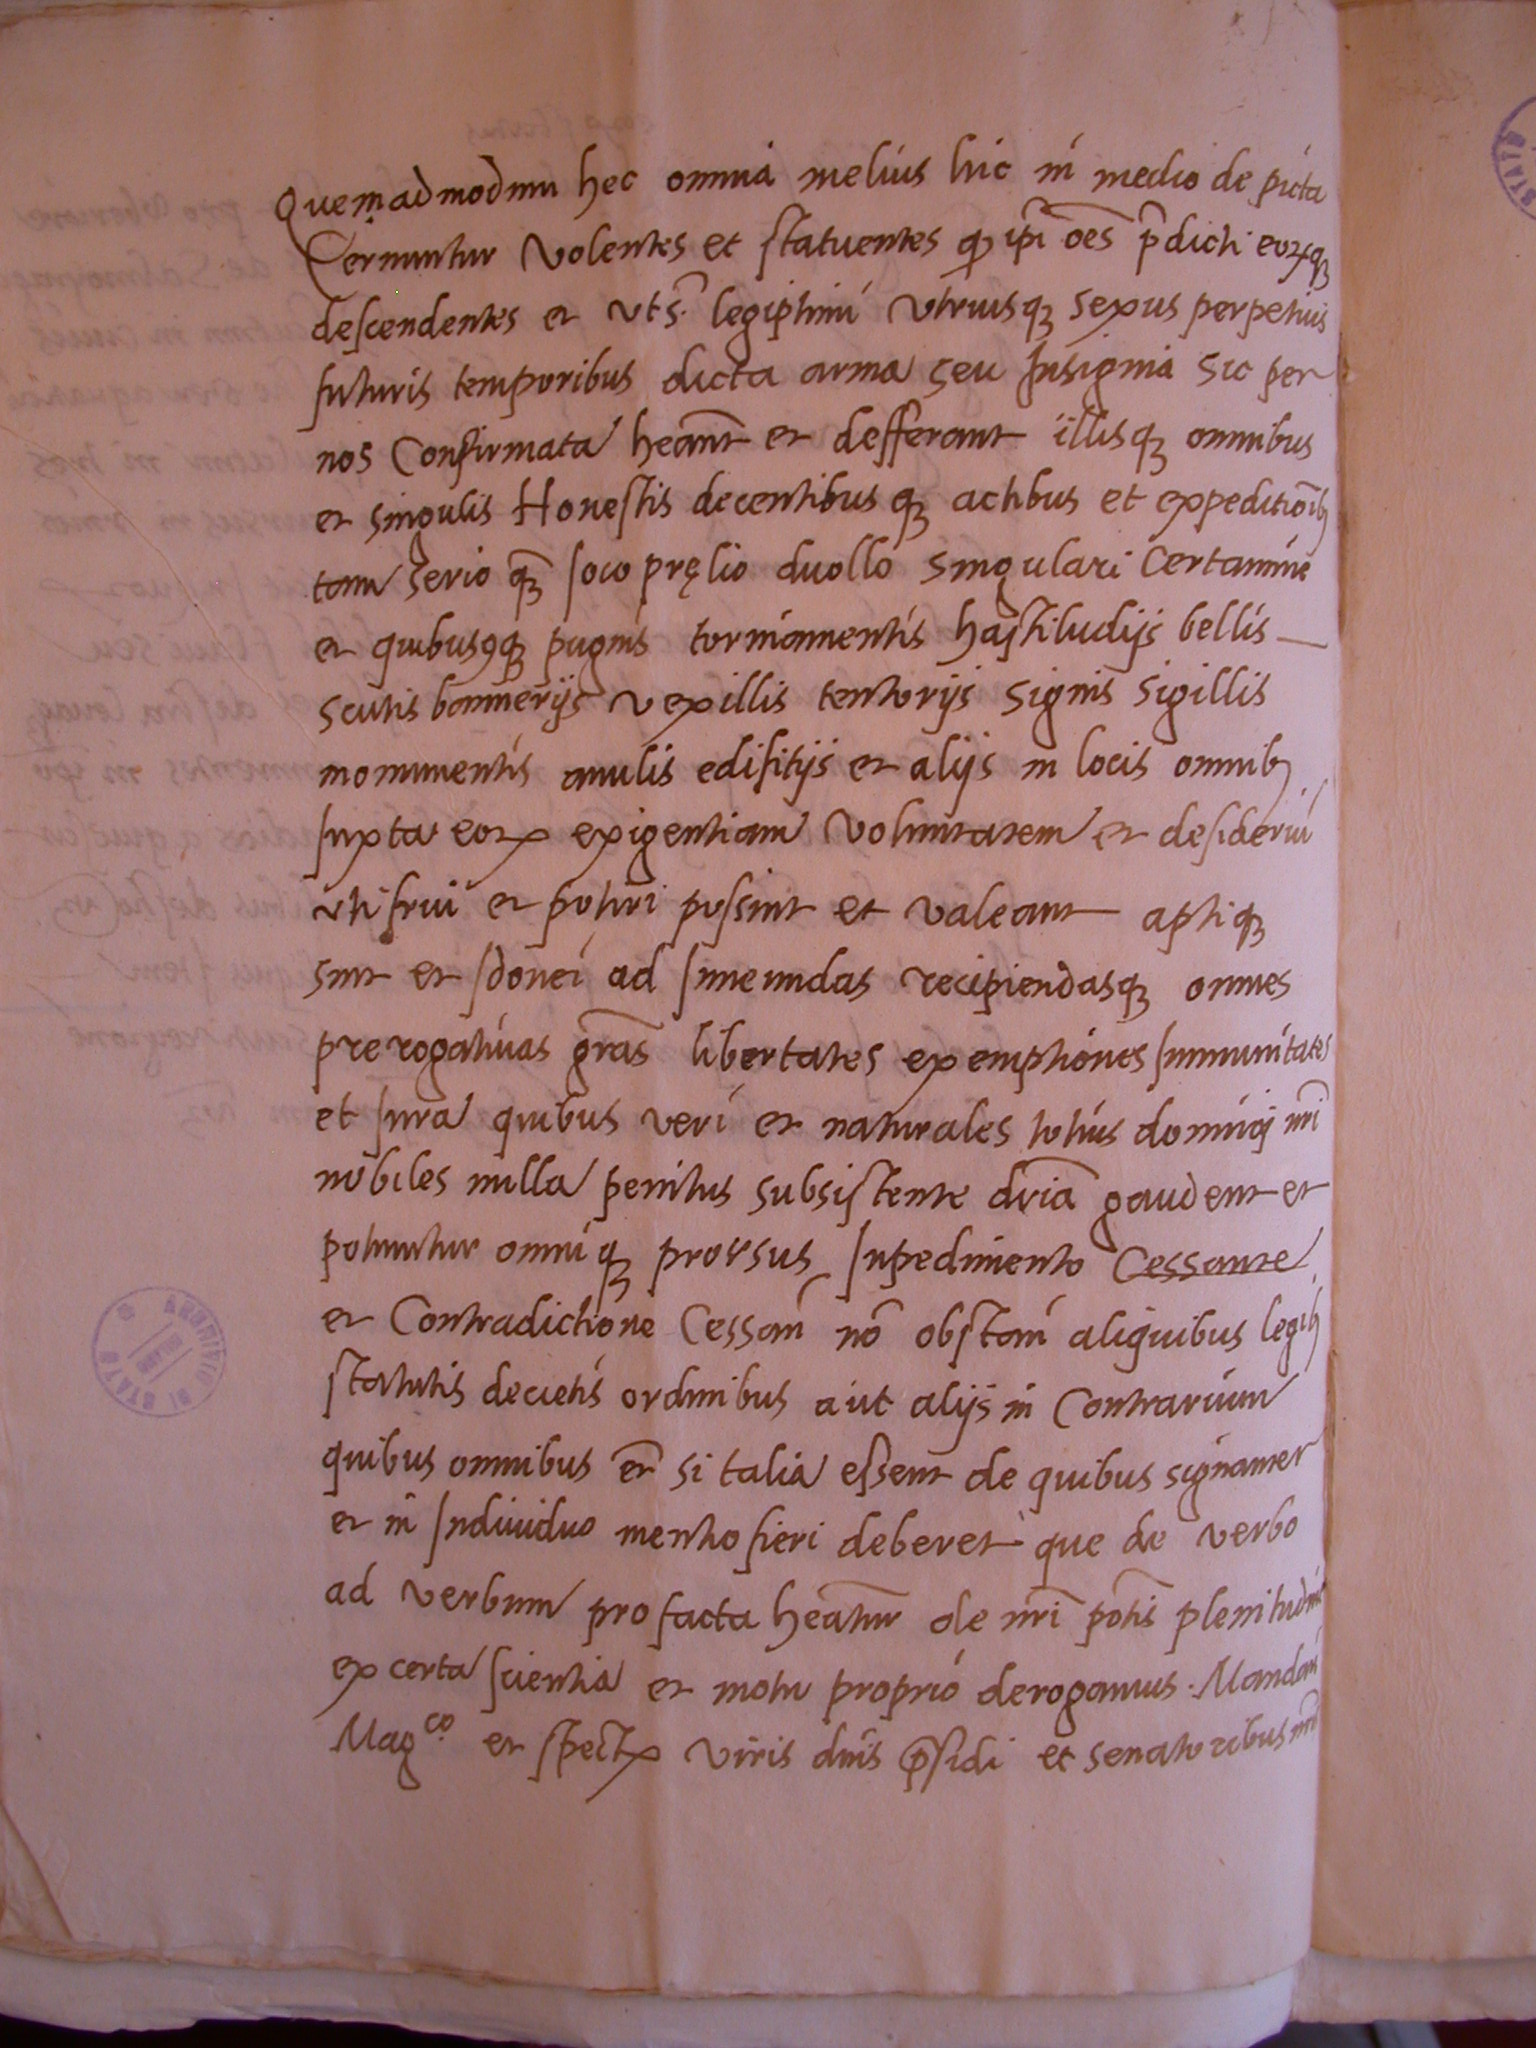 Quemadmodum hec omnia melius hic in medio de picta
Cernuntur Volentes et statuentes qd ipi oēs p̄dicti eorūq;
descendentes et vts. legiptimi Vtriusq; sexus perpetuis
futuris temporibus dicta arma seu Insignia sic per
nos Confirmata heānt et defferant illisq; omnibus
et singulis Honestis decentibusq; actibus et expeditiōib;
tam serio q̄; Ioco pręlio duollo singulari Certamine
et quibuscq; pugnis torniamentis hastiludijs bellis
scutis bannerijs vexillis tentorijs signis sigillis
monumentis anulis edifitijs et alijs in locis omnib;
Iuxta eorū exigentiam Voluntatem et desideriū
vti frui et potiri possint et valeant aptiq;
sint et Idonei ad Inneundas recipiendasq; omnes
prerogativas grās libertates exemptiones Immunitates
et Iura quibus veri et naturales totius dominij nri
nobiles nulla penitus subsistente driā gaudent et
potiuntur omniq; prorsus Inpedimento Cessante
et Contradictione Cessan̄ nō obstan̄ aliquibus legib;
statutis decretis ordinibus aut alijs in Contrarium
quibus omnibus et̄ si talia essent de quibus signanter
et in Individuo mentio fieri deberet que de verbo
ad verbum pro facta heātur de nri potis plenitudine
ex certa scientia et motu proprio derogamus. Mandan̄
Mag.co et spect. viris dnis p̄sidi et senatoribus nri
ARCHIVIO DI STATO
MILANO
STATO